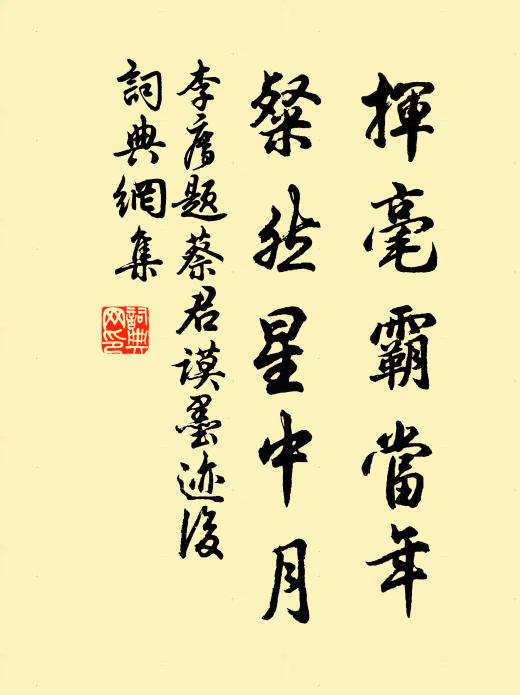 揮毫霸當年
粲然星中月
李廌題蔡君謨墨迹後
詞典網集
詞典
网印